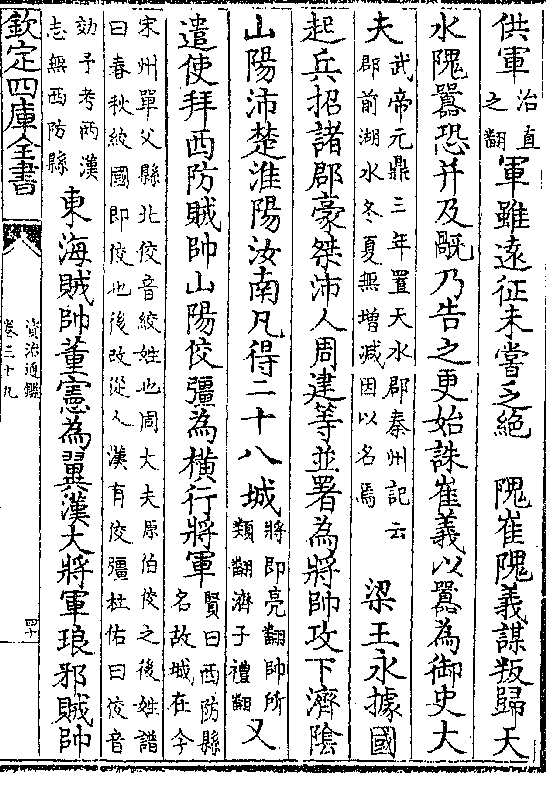 供軍治直之翻軍雖遠征未嘗乏絶　隗崔隗義謀叛歸天
水隗囂恐并及禍乃告之更始誅崔義以囂為御史大
夫武帝元鼎三年置天水郡秦州記云郡前湖水冬夏無增減因以名焉　梁王永據國
起兵招諸郡豪桀沛人周建等並署為將帥攻下濟陰
山陽沛楚淮陽汝南凡得二十八城將即亮翻帥所類翻濟子禮翻又
遣使拜西防賊帥山陽佼彊為橫行將軍賢曰西防縣名故城在今
宋州單父縣北佼音絞姓也周大夫原伯佼之後姓譜曰春秋絞國即佼也後改從人漢有佼彊杜佑曰佼音
効予考兩漢志無西防縣東海賊帥董憲為翼漢大將軍琅邪賊帥
欽定四庫全書
資治通鑑
卷三十九
四十